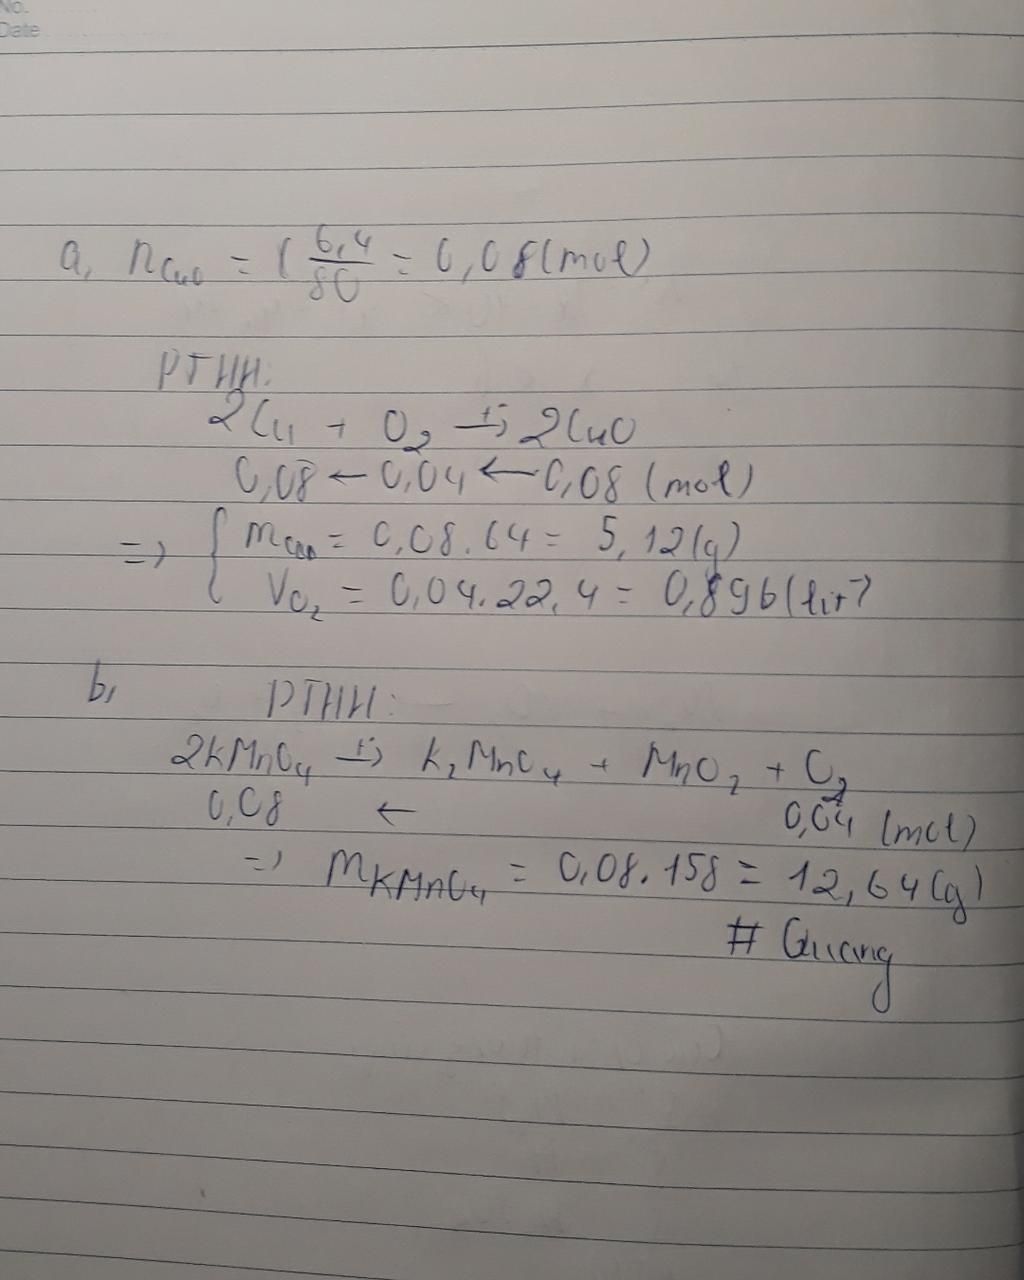 No.
Date
a, nCuO = ( 6,4/80 = 0,08 (mol)
PTHH:
2Cu + O₂ -t°-> 2CuO
0,08 ← 0,04 ← 0,08 (mol)
=> { mCuO = 0,08.64 = 5,12(g)
VO₂ = 0,04.22,4 = 0,896 (lít)
b,
PTHH:
2KMnO₄ -t°-> K₂MnO₄ + MnO₂ + O₂
0,08 ← 0,04 (mol)
=> mKMnO₄ = 0,08.158 = 12,64(g)
# Quang